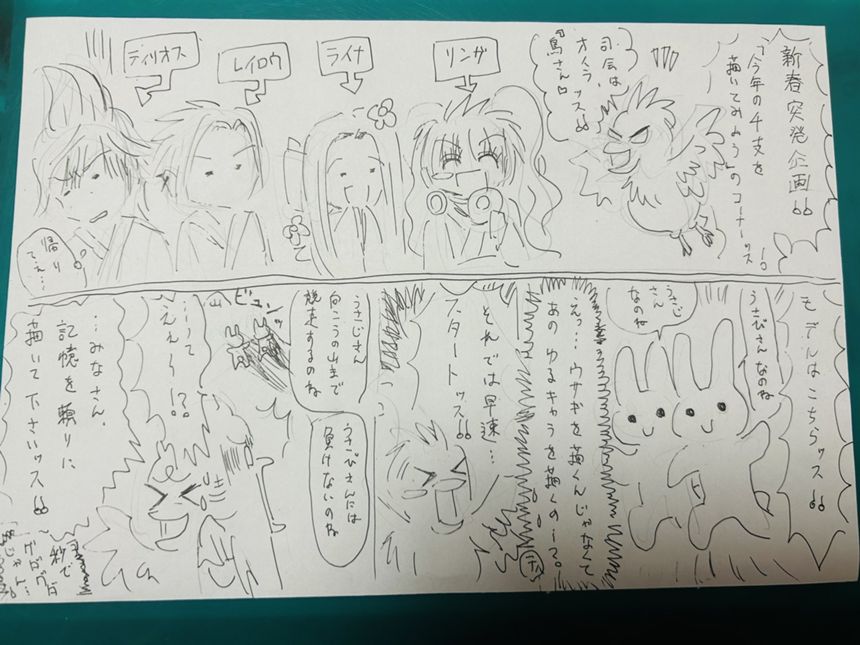 新春突発企画!!
「今年の干支を
描いてみよう」のコーナーッス!!
司会は、
オイラッス!!
『鳥さん』
リンザ
ライナ
レイロウ
ディリオス
帰り
てぇ…
モデルはこちらッス!!
うさびさんなのね
うさじ
さん
なのね
えっ…ウサギを描くんじゃなくて
あのゆるキャラを描くの!?
それでは早速…
スタートッス!!
うさじさん
向こうの山まで
競走するのね
うさびさんには
負けないのね
ビュンッ
…って
ええ〜!?
…みなさん、
記憶を頼りに
描いて下さいッス!!
秒で
グダグダ